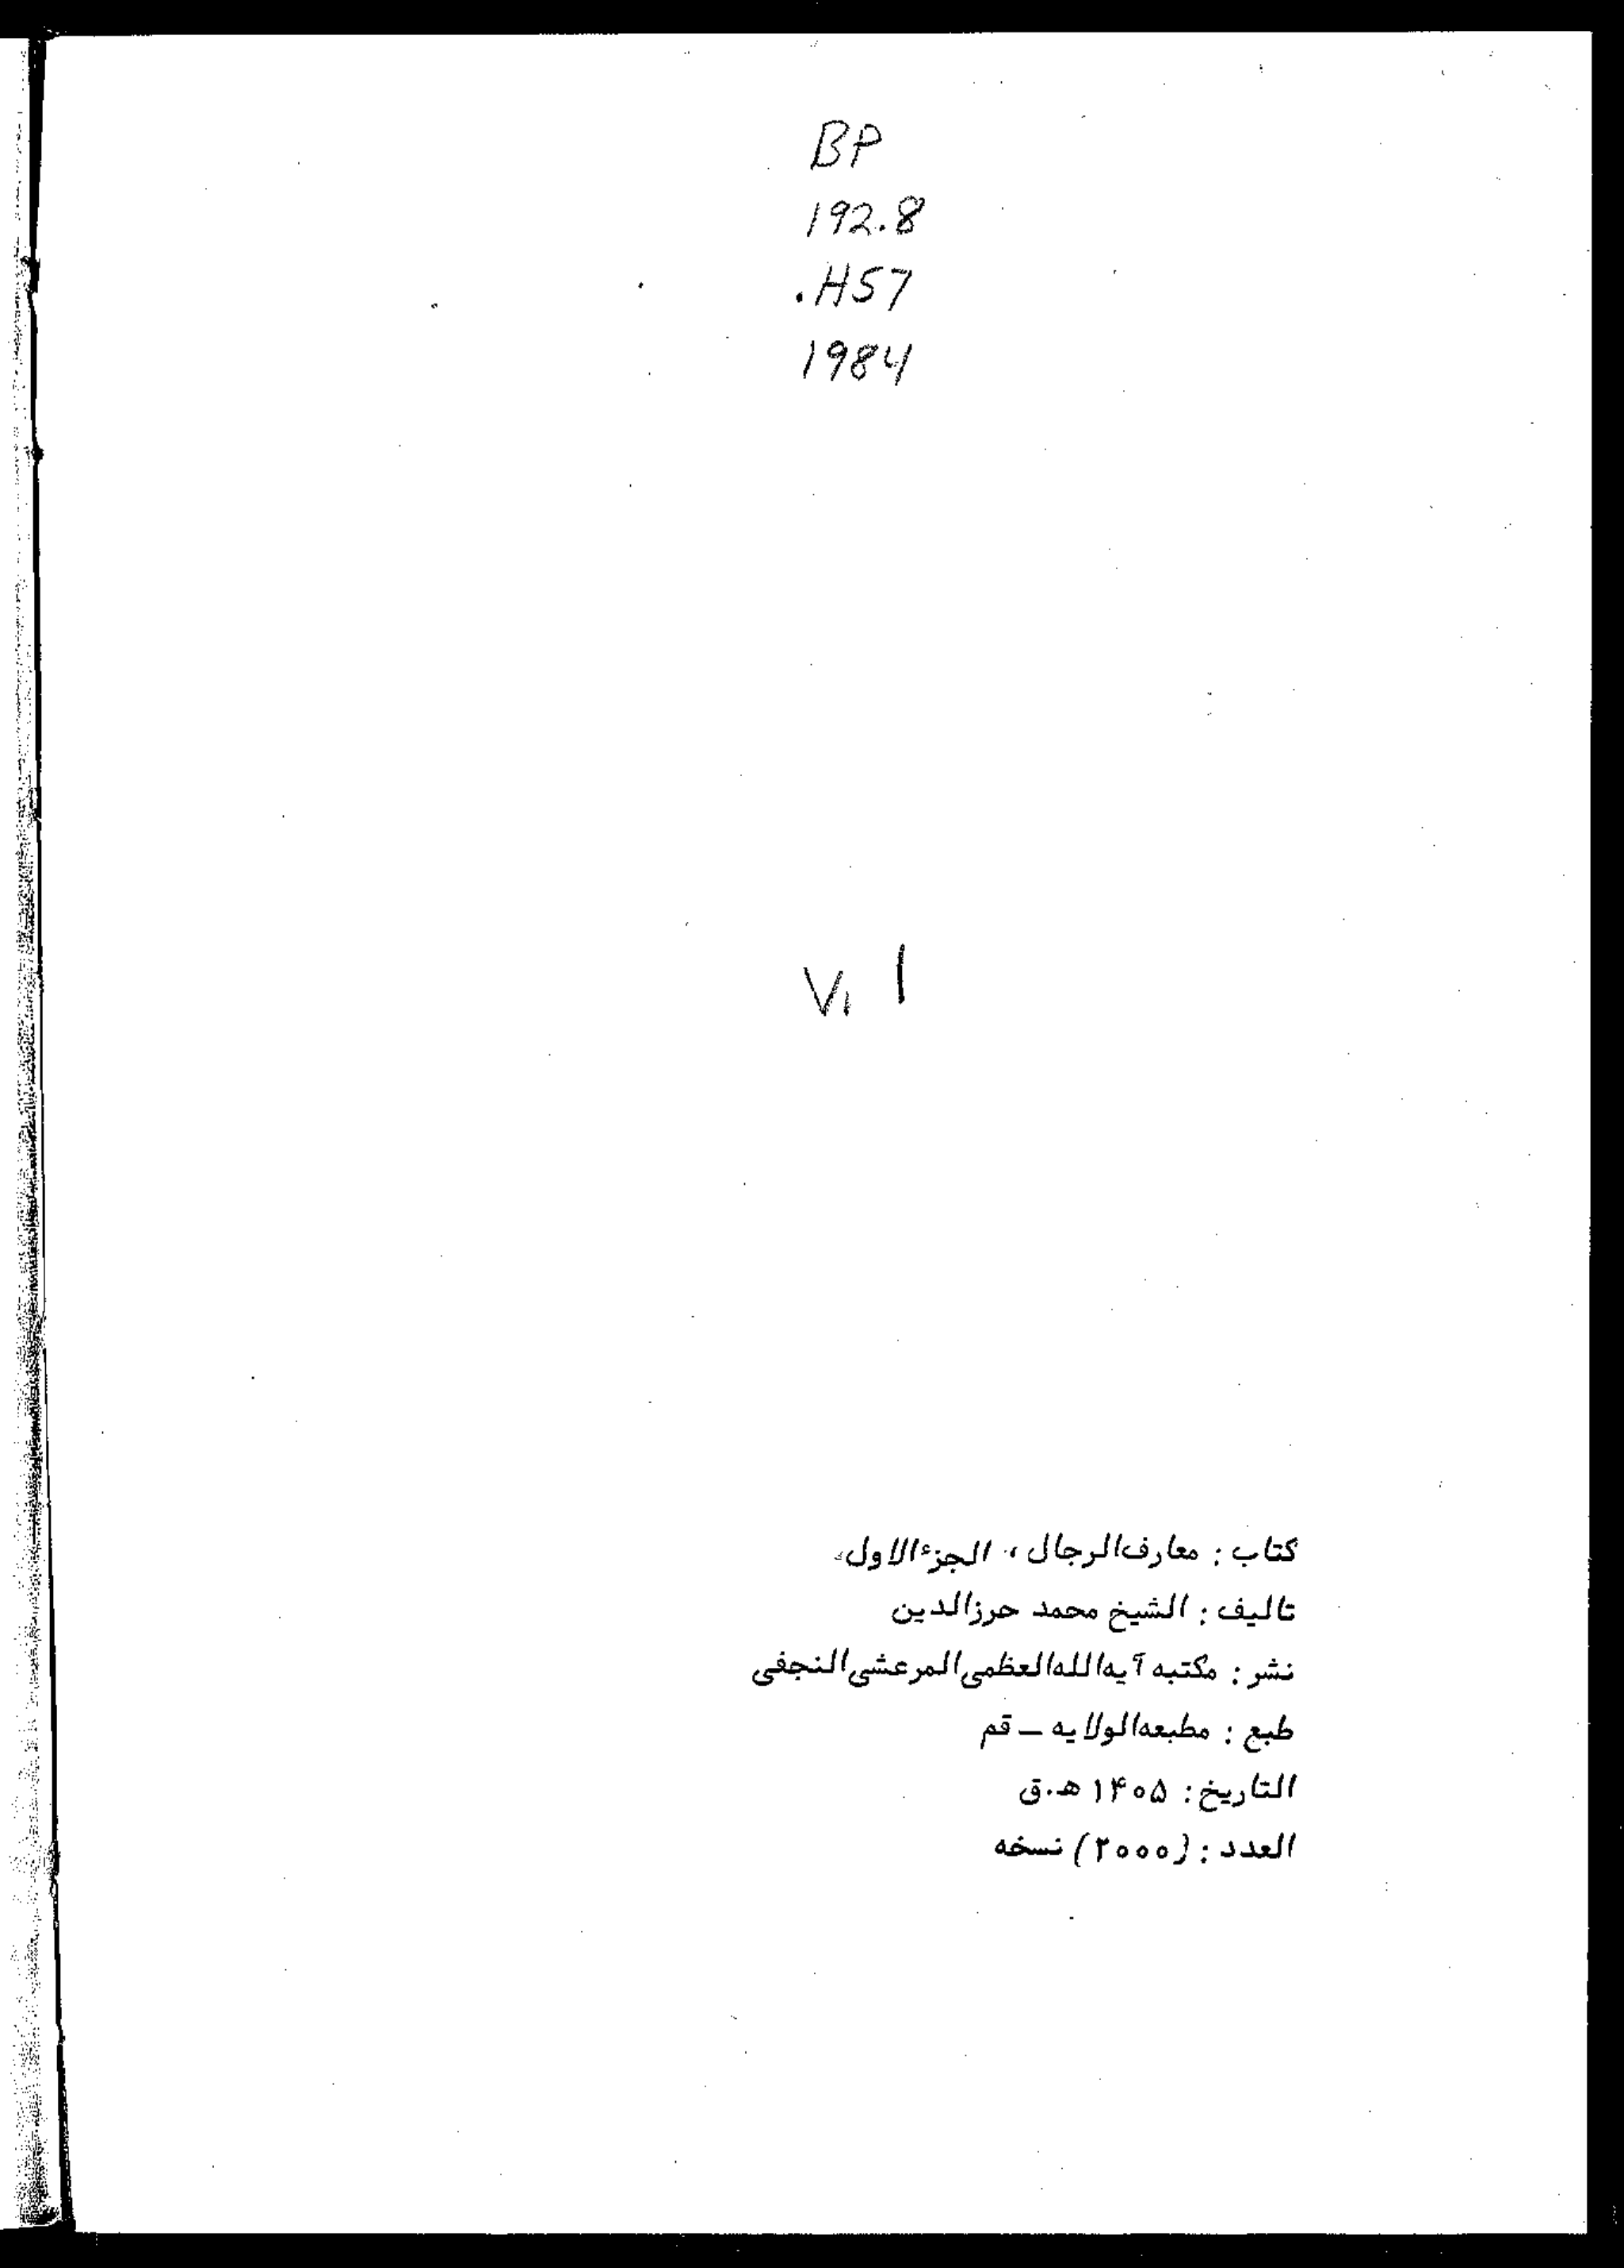 BP
192.8
.H57
1984
V. 1
كتاب : معارف‌الرجال ، الجزءالاول
تاليف : الشيخ محمد حرزالدين
نشر : مكتبه آيه‌الله‌العظمى‌المرعشى‌النجفى
طبع : مطبعه‌الولايه — قم
التاريخ : ۱۴۰۵ ه‍.ق
العدد : (۲۰۰۰) نسخه